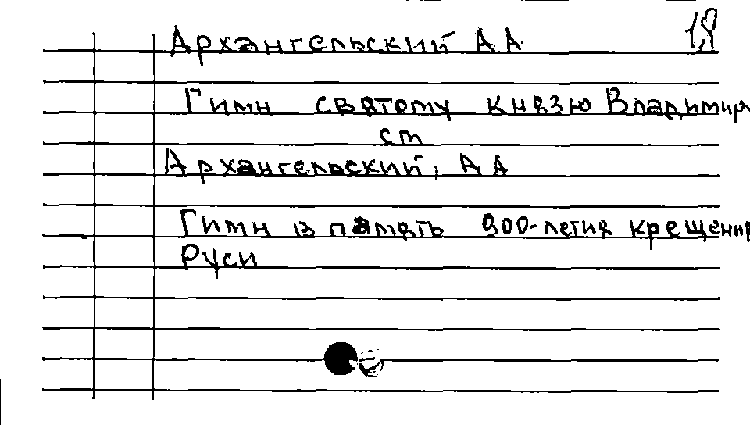 1,8
Архангельский А А
Гимн святому князю Владимиру
см
Архангельский, А А
Гимн в память 900-летия крещения
Руси